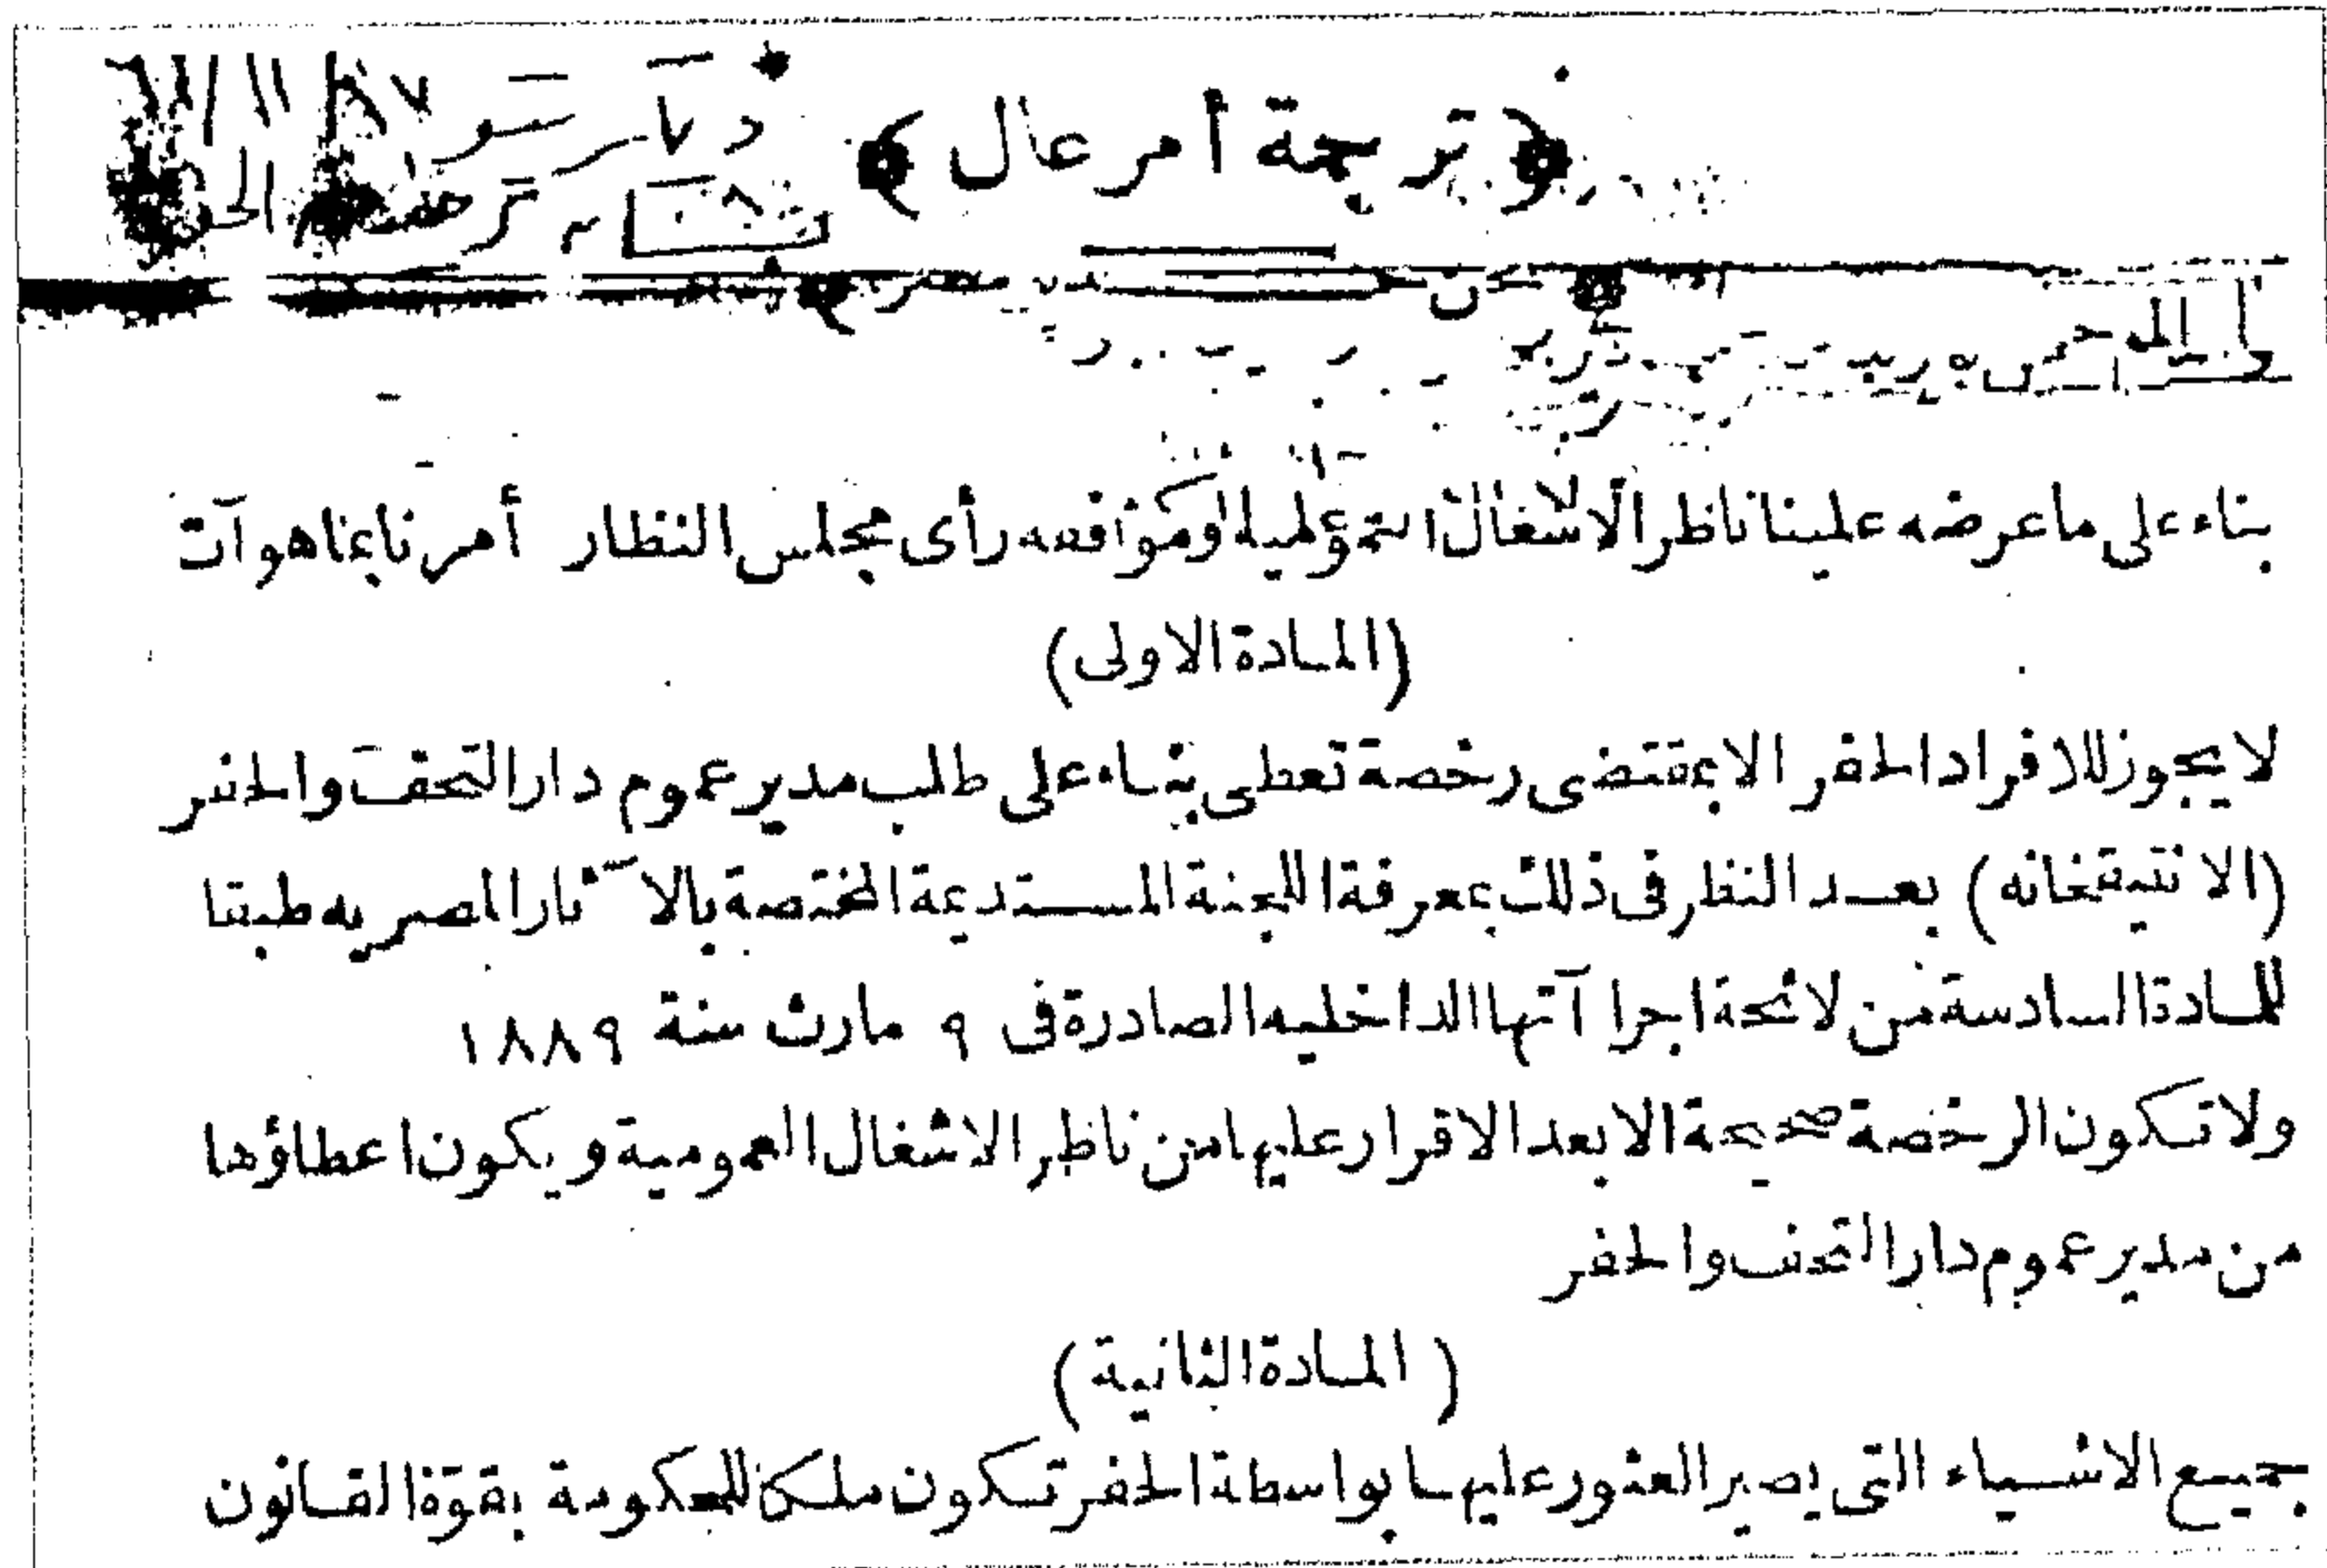 ﴿ ترجمة أمر عال ﴾
نحن خديو مصر
بناء على ما عرضه علينا ناظر الاشغال العمومية وموافقة رأى مجلس النظار أمرنا بما هو آت
(المادة الاولى)
لا يجوز للافراد الحفر الا بمقتضى رخصة تعطى بناء على طلب مدير عموم دار التحف والحفر
(الانتيقخانه) بعد النظر فى ذلك بمعرفة اللجنة المستديمة المختصة بالآثار المصريه طبقا
للمادة السادسة من لائحة اجراآتها الداخليه الصادرة فى ٩ مارث سنة ١٨٨٩
ولا تكون الرخصة صحيحة الا بعد الاقرار عليها من ناظر الاشغال العمومية ويكون اعطاؤها
من مدير عموم دار التحف والحفر
(المادة الثانية)
جميع الاشياء التى يصير العثور عليها بواسطة الحفر تكون ملكا للحكومة بقوة القانون